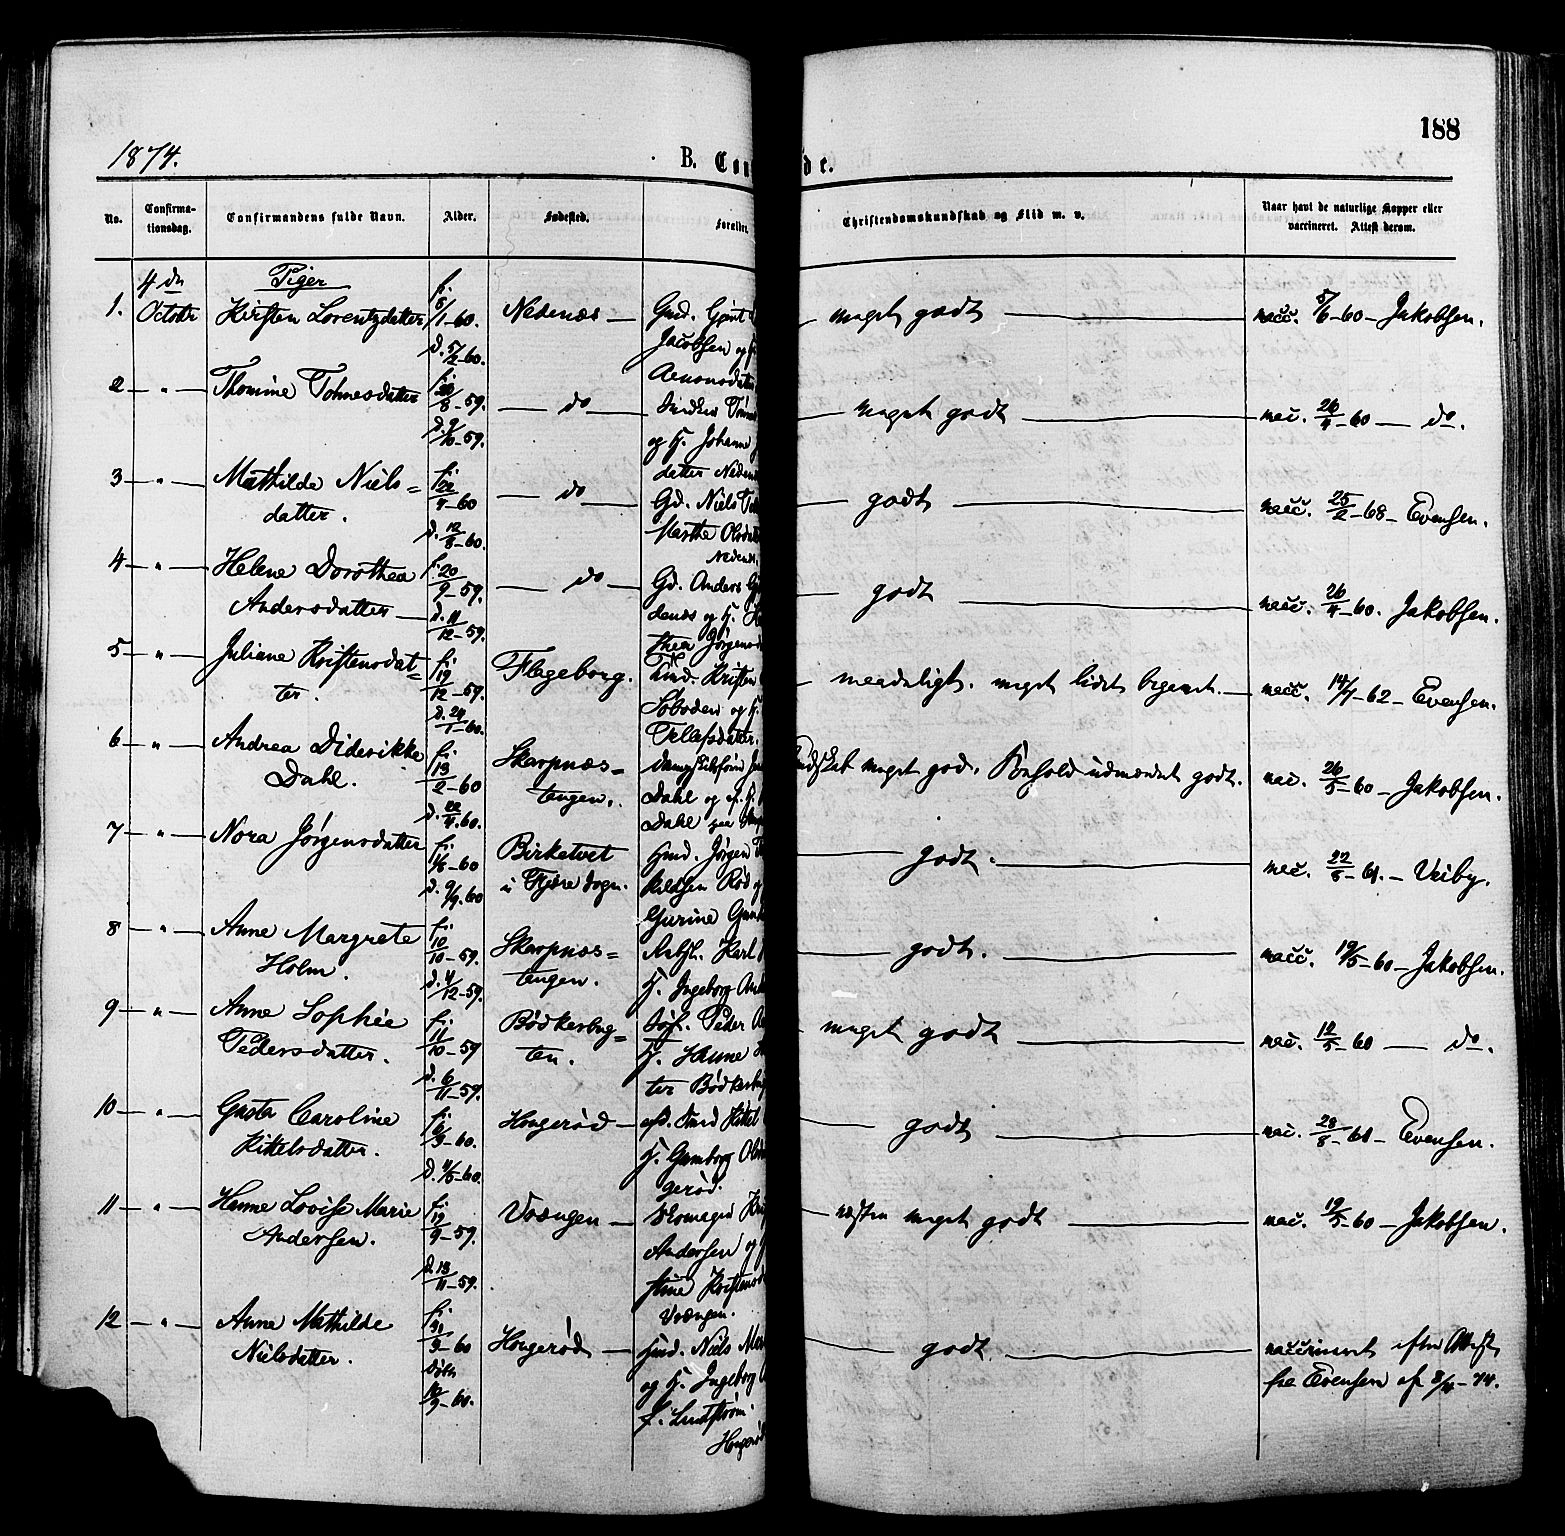 188
1874.
B. Con
de.
No.
Confirma-
tionsdag.
Confirmandens fulde Navn.
Alder.
Fødested.
Forældre
Christendomskundskab og Flid m. v.
Naar havt de naturlige Kopper eller
vaccineret. Attest derom.
4 de
October
Piger
1. Kirsten Lorentzdatter f. 5/1-60. d. 5/2-60. Nedenæs — Gmd.
Jacobsen og
meget godt — vacc. 5/6-60 — Jakobsen.
2 — " — Thomine Tohnesdatter f. 20/8-59. d. 9/10-59. — do —
og H. Johanne
datter Neden
meget godt — vac. 26/4-60 — do.
3 — " — Mathilde Niels=
datter. f. 22/4-60 d. 12/8-60. — do — Gd. Niels
Marthe Olsdat
Nedenæs
godt — vacc. 25/2-68 — Evensen.
4 — " — Helene Dorothea
Andersdatter — f. 20/9-59. d. 11/12-59. — do — Gd. Anders
denæs og H.
thea Jørgensd
godt — vacc. 26/4-60. Jakobsen.
5 — " — Juliane Kristensdat=
ter. f. 19/12-59. d. 24/1-60. Flageborg. Kristen
og H.
Tellefsdatter.
maadeligt. meget lidet begavet. — vacc. 14/7-62 — Evensen.
6 — " — Andrea Diderikke
Dahl. f. 13/2-60 d. 22/4-60. Skarpnæs=
tangen.
Dahl og H.
Dahl
Kundskab meget god. Forhold udmærket godt. vac. 26/5-60 — Jakobsen.
7 — " — Nora Jørgensdatter f. 1/6-60 d. 9/9-60 Birketvet
i Hjsre Sogn. Hmd. Jørgen
kildsen Rød og
Gurine
godt. — vac. 22/8-61. — Veiby.
8 — " — Anne Margrete
Holm. f. 10/10-59. d. 4/12-59. Skarpnæs=
tangen. Karl
H. Ingeborg And
godt. — vacc. 19/5-60 — Jakobsen.
9 — " — Anne Sophie
Pedersdatter. f. 11/10-59 d. 6/11-59. Bødkerbug=
ten. Søf. Peder
H. Hanne
ter Bødkerbug
meget godt — vac. 19/5-60 — do.
10 — " — Gusta Caroline
Kittelsdatter. f. 6/3-60. d. 4/5-60. Hougerød — Kittel
H. Gunborg Olsd
gerød.
godt — vac. 28/8-61 — Evensen.
11 — " — Hanne Lovise Marie
Andersen. f. 19/9-59. d. 13/11-59. Vrængen — Skomager
Andersen og
stine Kristensd
Vrængen.
næsten meget godt — vac. 19/5-60 — Jakobsen.
12 — " — Anne Mathilde
Nielsdatter. f. 21/3-60 døbt 10/9-60. Hougerød — Hmd. Niels
og H. Ingeborg
f. Lindstrøm
Hougerød
godt — vaccineret efter Attest
fra Evensen af 8/4-74.